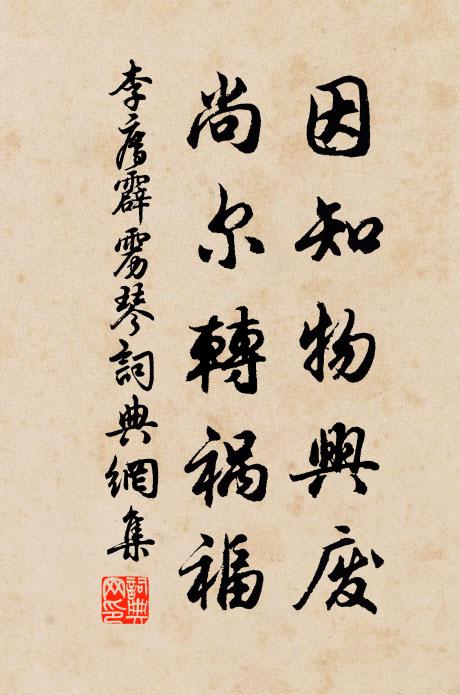 因知物興廢
尚尔轉禍福
李廌霹雳琴詞典網集
詞典网印